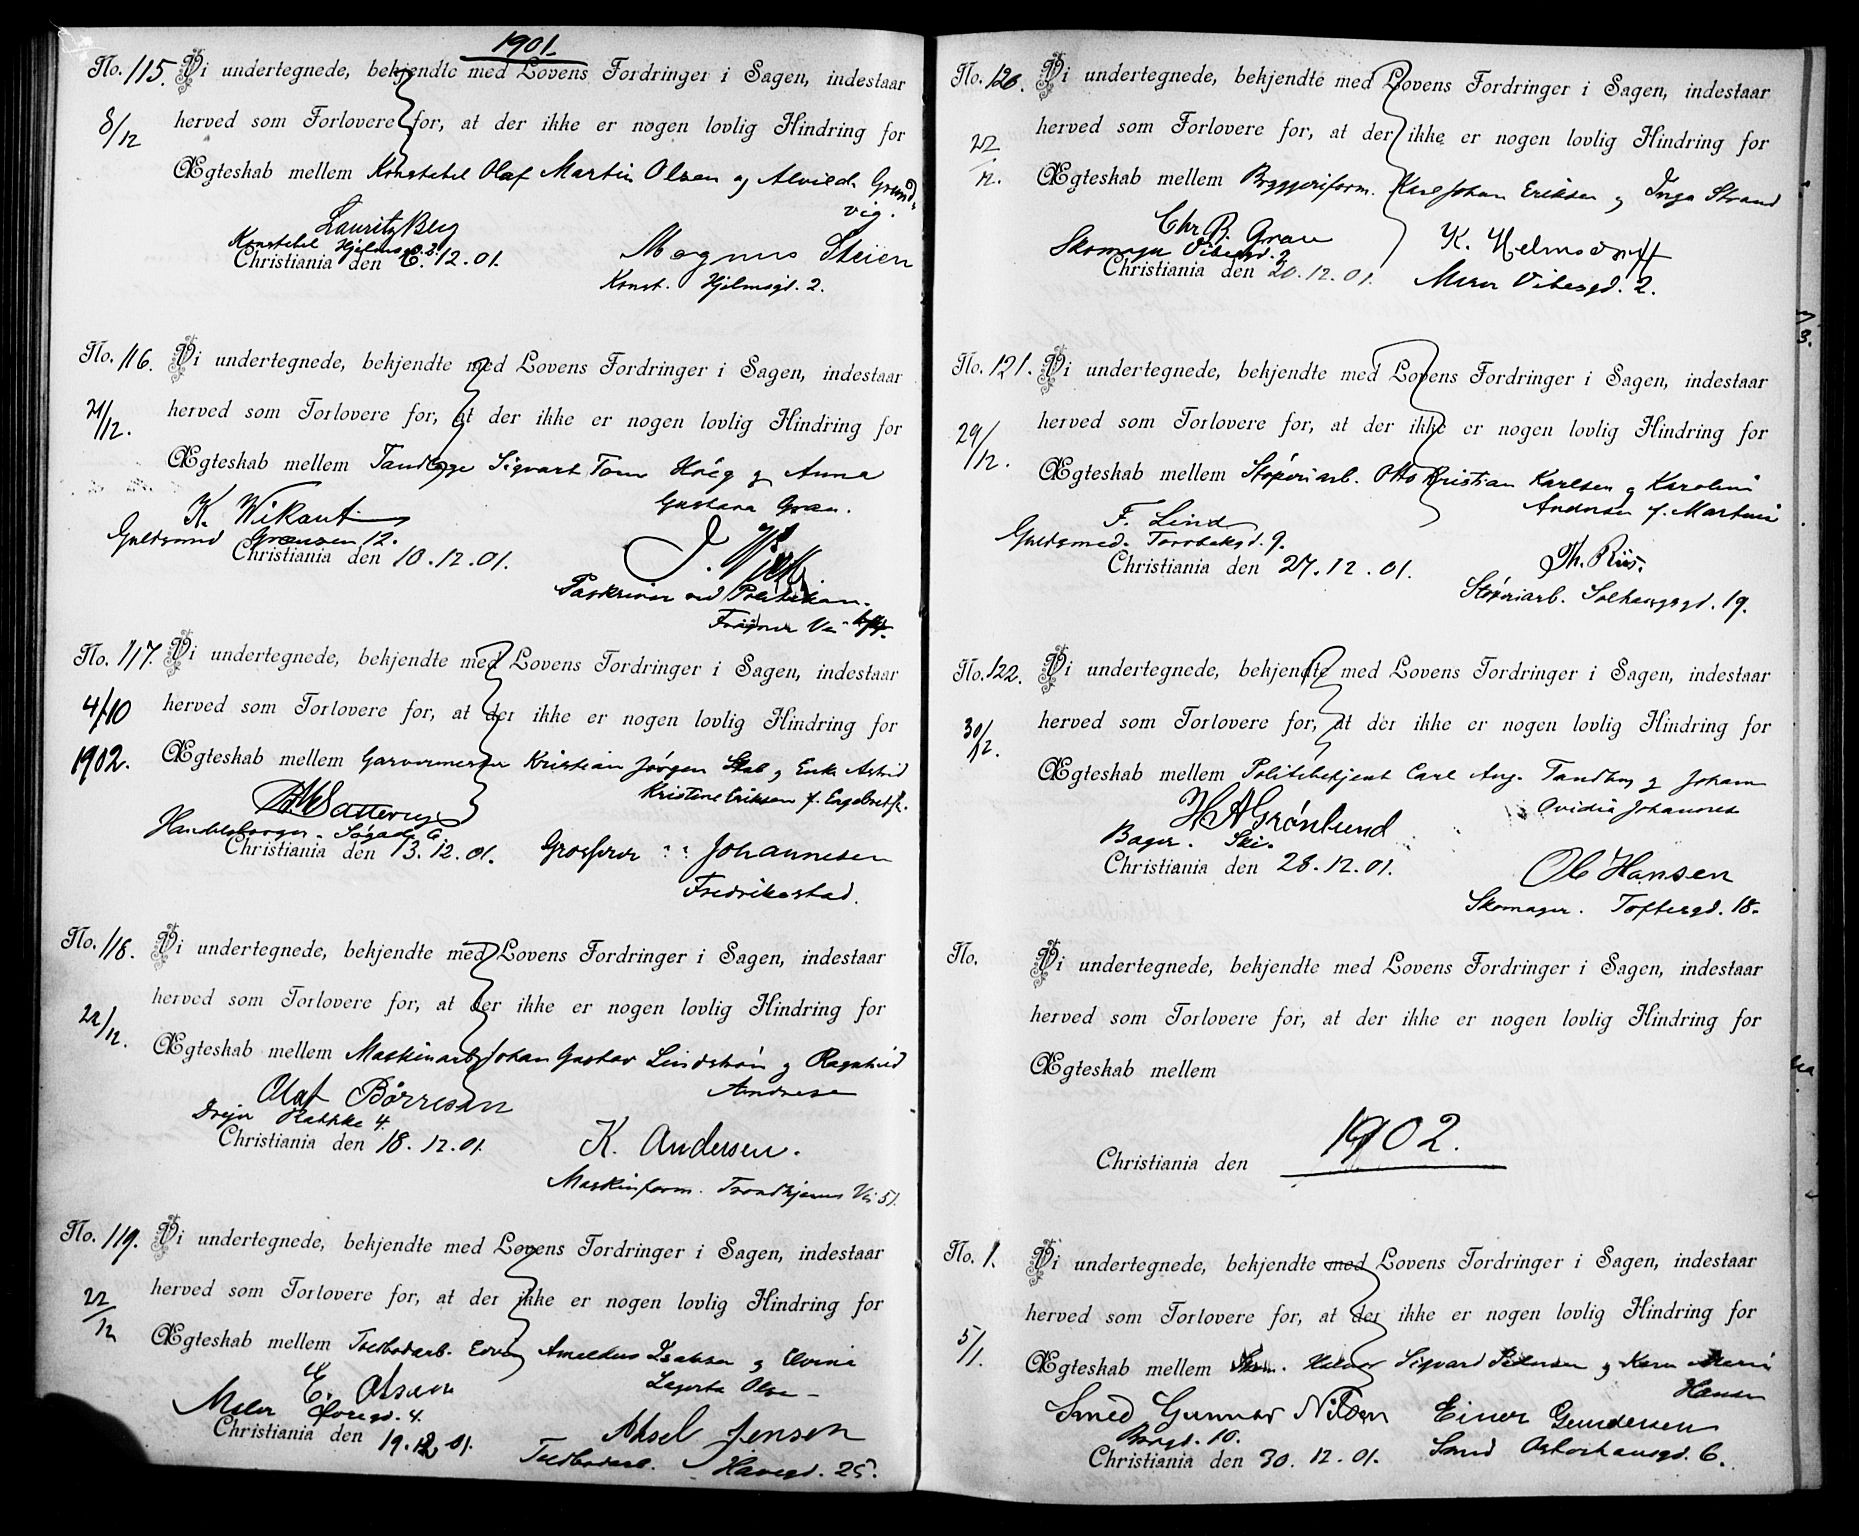 1901.
No. 115. Vi undertegnede, bekjendte med Lovens Fordringer i Sagen, indestaar
8/12 herved som Forlovere for, at der ikke er nogen lovlig Hindring for
Ægteskab mellem Konstabel Olaf Martin Olsen og Alvilde Grund-
vig.
Lauritz Berg
Konstabel Hjelmsg. 2.
Magnus Steien
Christiania den 6. 12. 01.
Konst. Hjelmsgd. 2.
No. 116. Vi undertegnede, bekjendte med Lovens Fordringer i Sagen, indestaar
21/12. herved som Forlovere for, at der ikke er nogen lovlig Hindring for
Ægteskab mellem Tandlæge Sigvart Høeg og Anna
Gustava Gran.
K. Wikant
Guldsmed Grænsen 12.
Christiania den 10. 12. 01.
J.
ved
No. 117. Vi undertegnede, bekjendte med Lovens Fordringer i Sagen, indestaar
4/10 herved som Forlovere for, at der ikke er nogen lovlig Hindring for
1902. Ægteskab mellem Garvermester Kristian Jørgen og Enke Astrid
Kristine Eriksen f. Engebretse.
Handelsborger. Søgade 6
Christiania den 13. 12. 01. Grosserer Johannesen
Fredrikstad.
No. 118. Vi undertegnede, bekjendte med Lovens Fordringer i Sagen, indestaar
22/12. herved som Forlovere for, at der ikke er nogen lovlig Hindring for
Ægteskab mellem Maskinarb. Johan Gustav Lindstrøm og Ragnhild
Andresen
Olaf Børresen
Drejer 4.
Christiania den 18. 12. 01.
K. Andersen.
Maskinform. Trondhjems Vei 51.
No. 119. Vi undertegnede, bekjendte med Lovens Fordringer i Sagen, indestaar
22/12 herved som Forlovere for, at der ikke er nogen lovlig Hindring for
Ægteskab mellem Isaksen og Elvine
Olsen
E. Olsen
Maler 4.
Christiania den 19. 12. 01.
Aksel Jensen
Havegd. 25.
No. 120. Vi undertegnede, bekjendte med Lovens Fordringer i Sagen, indestaar
22/12. herved som Forlovere for, at der ikke er nogen lovlig Hindring for
Ægteskab mellem Byggeriform. Karl Johan Eriksen og Inga Strand
Chr. B. Grau
Skomager Vibesgd. 2
K. Helmsdorff
Christiania den 20. 12. 01.
Murer Vibesgd. 2.
No. 121. Vi undertegnede, bekjendte med Lovens Fordringer i Sagen, indestaar
29/12. herved som Forlovere for, at der ikke er nogen lovlig Hindring for
Ægteskab mellem Støperiarb. Otto Kristian Karlsen og Karoline
Andersen f. Martinsen
F. Lind
Guldsmed. Torvbakgd. 9.
Christiania den 27. 12. 01.
Th. Riis.
Støperiarb. Solhauggd. 19.
No. 122. Vi undertegnede, bekjendte med Lovens Fordringer i Sagen, indestaar
30/12. herved som Forlovere for, at der ikke er nogen lovlig Hindring for
Ægteskab mellem Politibetjent Carl Aug. Tandberg og Johanne
Ovidia Johannesen
H A Grønlund
Bager. Ski.
Christiania den 28. 12. 01.
Ole Hansen
Skomager. Toftesgd. 18.
No. Vi undertegnede, bekjendte med Lovens Fordringer i Sagen, indestaar
herved som Forlovere for, at der ikke er nogen lovlig Hindring for
Ægteskab mellem
1902.
Christiania den
No. 1. Vi undertegnede, bekjendte med Lovens Fordringer i Sagen, indestaar
5/1. herved som Forlovere for, at der ikke er nogen lovlig Hindring for
Ægteskab mellem Halvor Sigvard Petersen og Karen Marie
Hansen
Smed Gunnar Nilsen
Borgd. 10.
Einar Gundersen
Christiania den 30. 12. 01.
Smed Osterhausgd. 6.